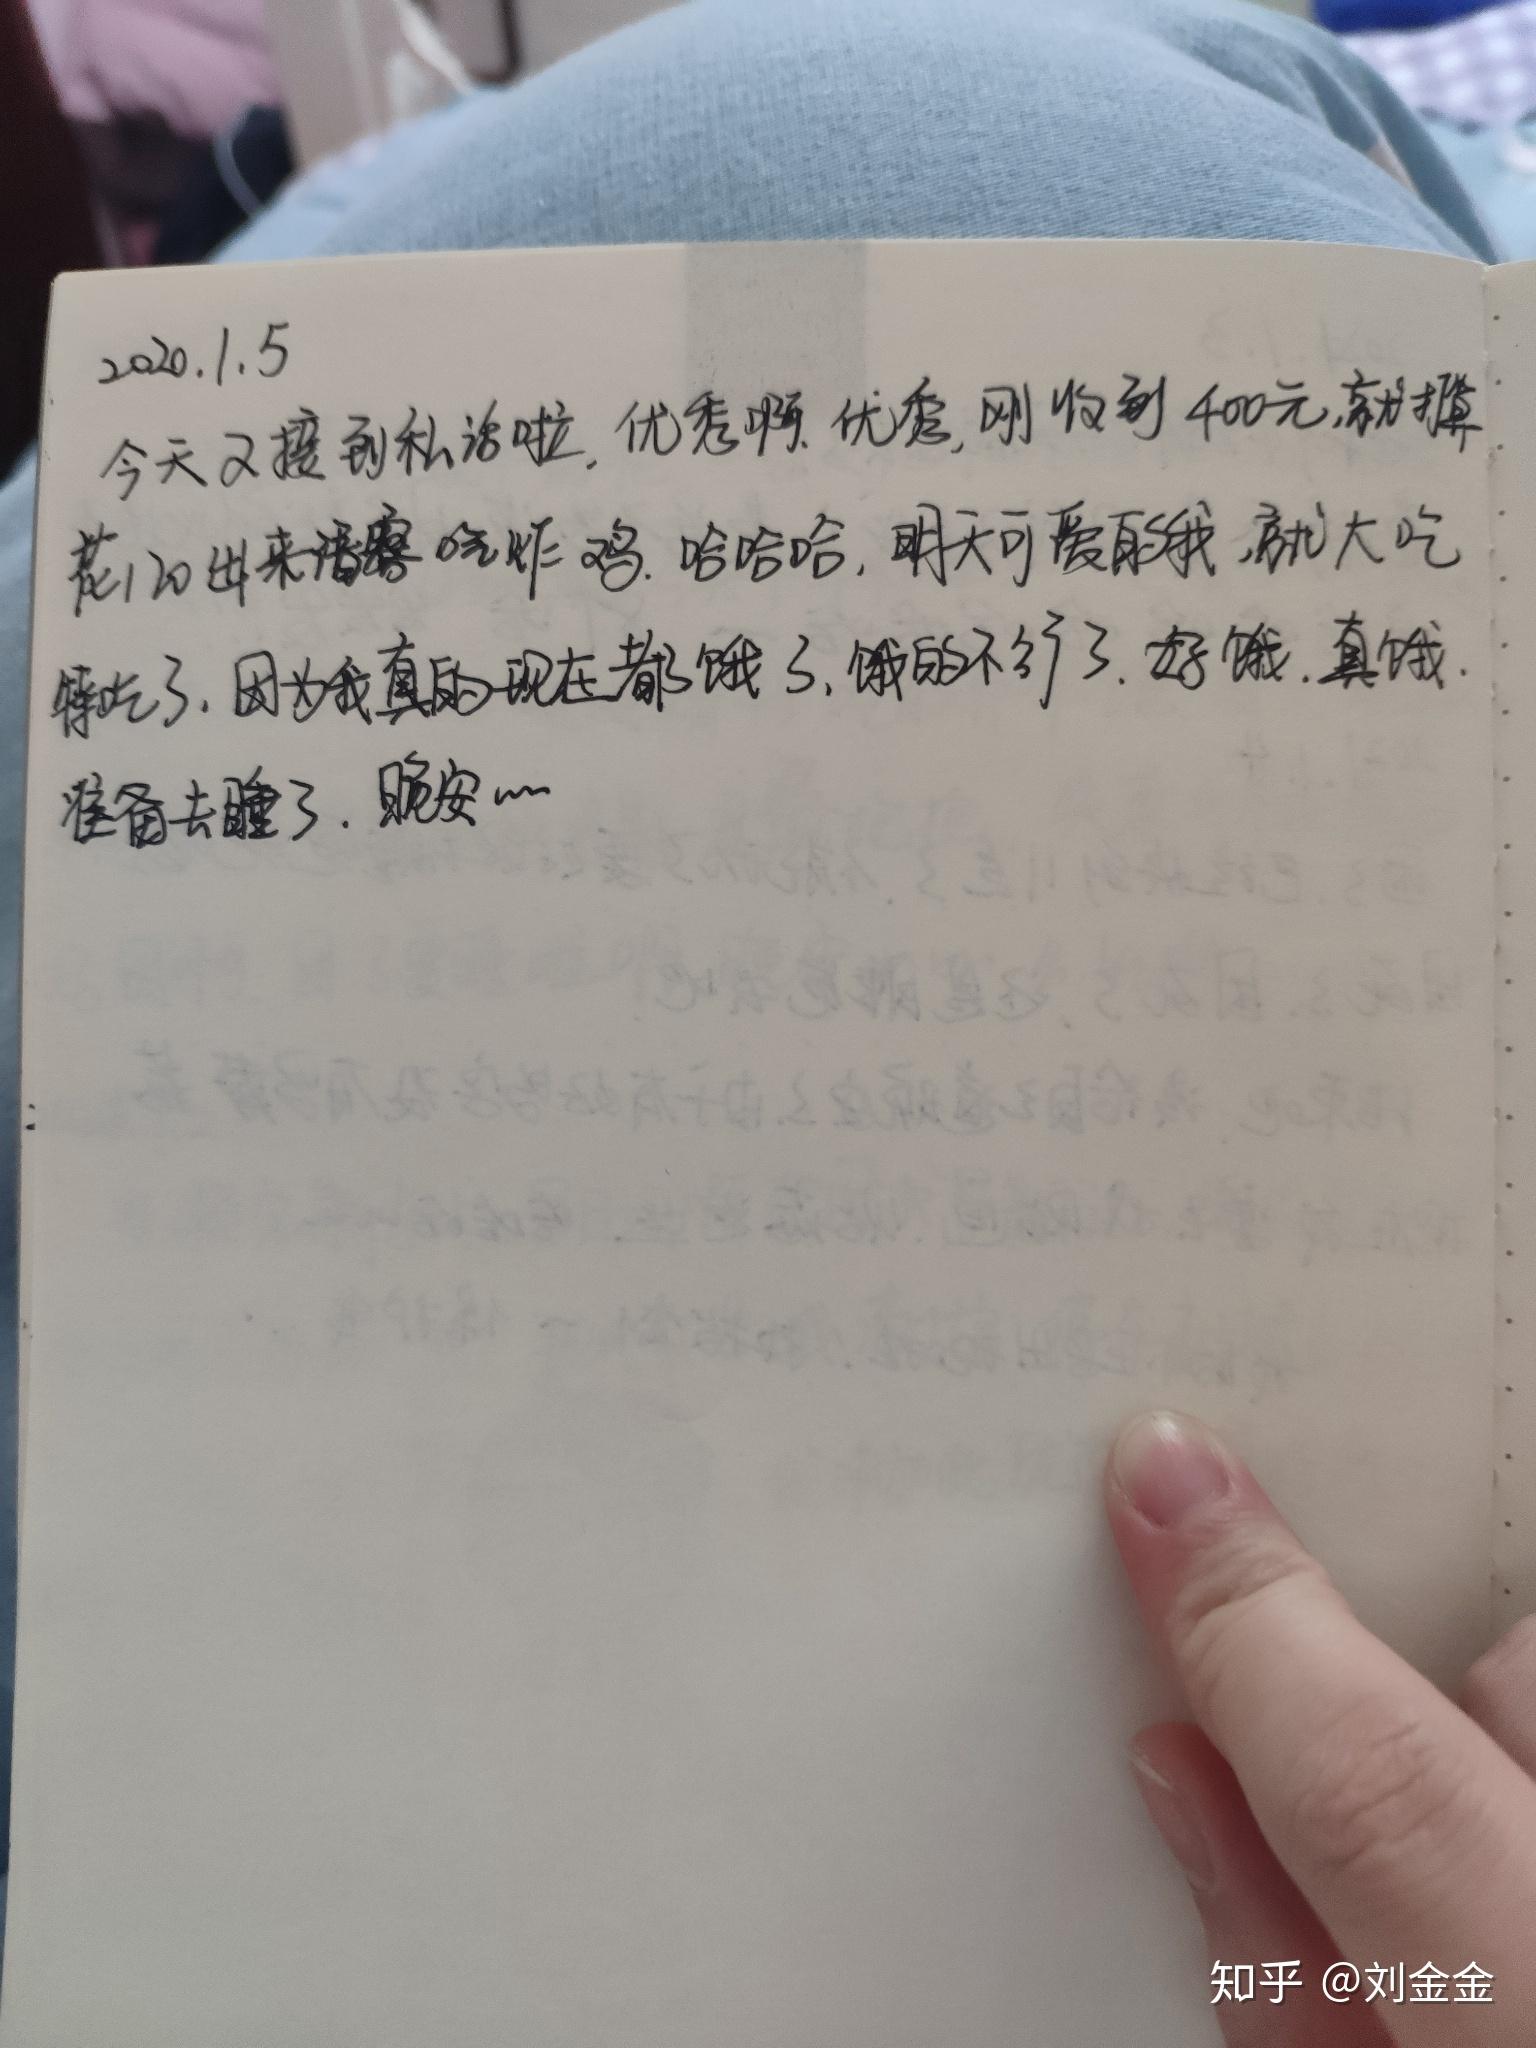 2020.1.5
今天又接到私活啦,优秀啊.优秀,刚收到400元,就打算
花120出来 吃炸鸡.哈哈哈,明天可爱的我,就大吃
特吃了.因为我真的现在都饿了,饿的不行了.好饿.真饿.
准备去睡了.晚安~~
知乎 @刘金金